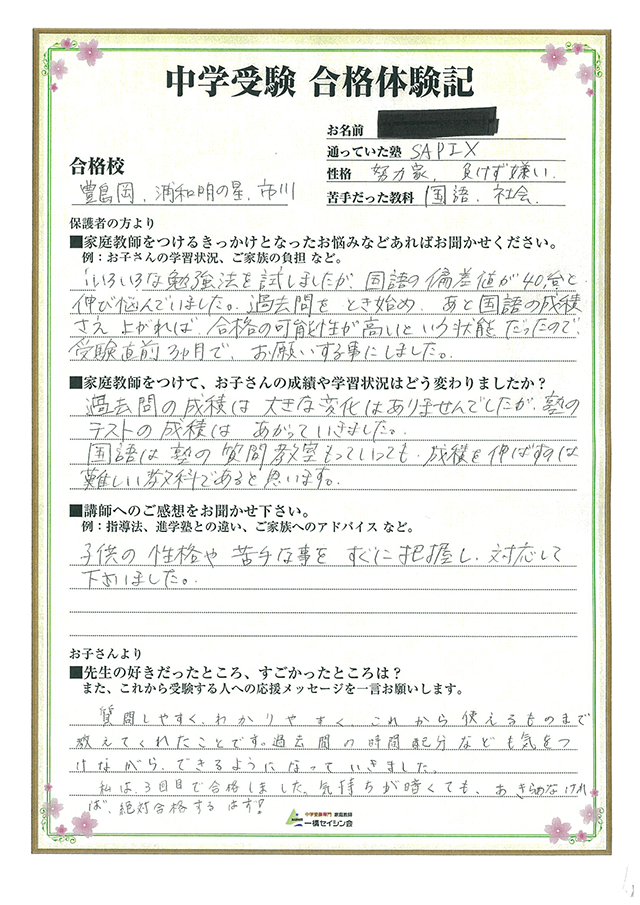 中学受験 合格体験記
お名前
通っていた塾 SAPIX
性格 努力家、負けず嫌い.
苦手だった教科 国語、社会.
合格校
豊島岡、浦和明の星、市川
保護者の方より
■家庭教師をつけるきっかけとなったお悩みなどあればお聞かせください。
例：お子さんの学習状況、ご家族の負担 など。
いろいろな勉強法を試しましたが、国語の偏差値が40台と
伸び悩んでいました。過去問をとき始め、あと国語の成積
さえ上がれば、合格の可能性が高いという状態だったので、
受験直前3ヶ月で、お願いする事にしました。
■家庭教師をつけて、お子さんの成績や学習状況はどう変わりましたか？
過去問の成積は大きな変化はありませんでしたが、塾の
テストの成積は あがっていきました。
国語は塾の質問教室もっていっても、成積を伸ばすのは
難しい教科であると思います。
■講師へのご感想をお聞かせ下さい。
例：指導法、進学塾との違い、ご家族へのアドバイス など。
子供の性格や苦手な事をすぐに把握し、対応して
下さいました。
お子さんより
■先生の好きだったところ、すごかったところは？
また、これから受験する人への応援メッセージを一言お願いします。
質問しやすく、わかりやすく、これから使えるものまで
教えてくれたことです。過去問の時間配分なども気をつ
けながら、できるようになっていきました。
私は3回目で合格しました。気持ちが暗くても、あきらめなけれ
ば、絶対合格するはず!
中学受験専門 家庭教師
一橋セイシン会